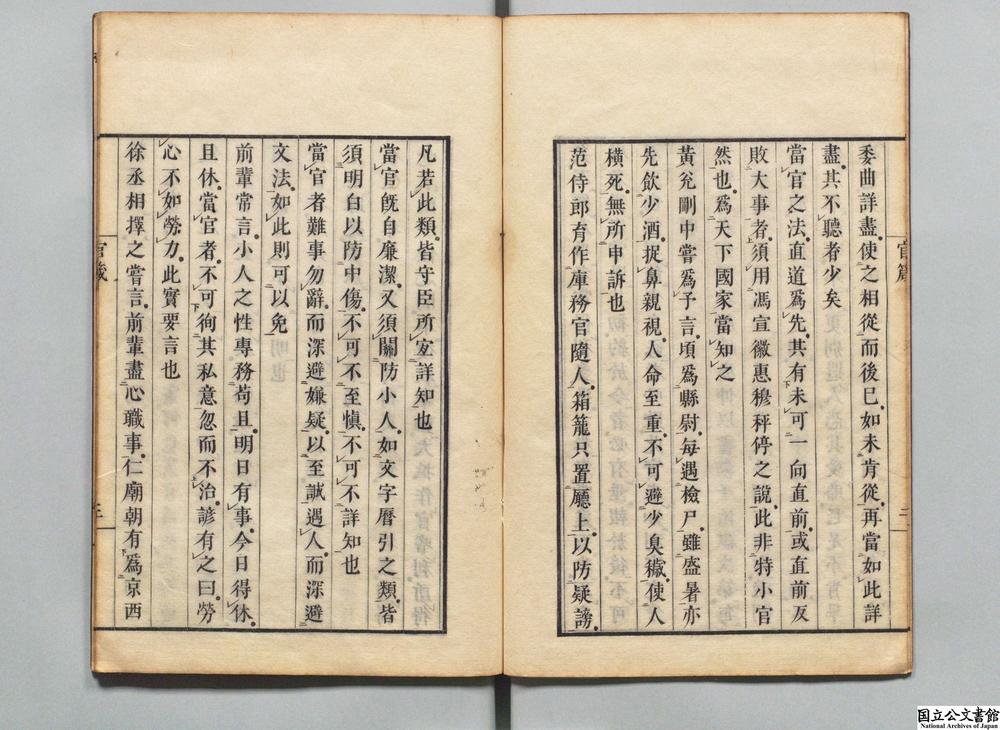 委曲詳盡使之相從而後已如未肯從再當如此詳
盡其不聽者少矣
當官之法直道爲先其有未可一向直前或直前反
敗大事者須用馮宣徽惠穆秤停之說此非特小官
然也爲天下國家當知之
黃兊剛中嘗爲予言頃爲縣尉每遇檢尸雖盛暑亦
先飲少酒捉鼻親視人命至重不可避少臭穢使人
橫死無所申訴也
范侍郎育作庫務官隨人箱籠只置廳上以防疑謗
官箴
三
凡若此類皆守臣所宜詳知也
當官旣自廉潔又須關防小人如文字曆引之類皆
須明白以防中傷不可不至愼不可不詳知也
當官者難事勿辭而深避嫌疑以至誠遇人而深避
文法如此則可以免
前輩常言小人之性專務苟且明日有事今日得休
且休當官者不可徇其私意忽而不治諺有之曰勞
心不如勞力此實要言也
徐丞相擇之嘗言前輩盡心職事仁廟朝有爲京西
官箴
三
国立公文書館
National Archives of Japan